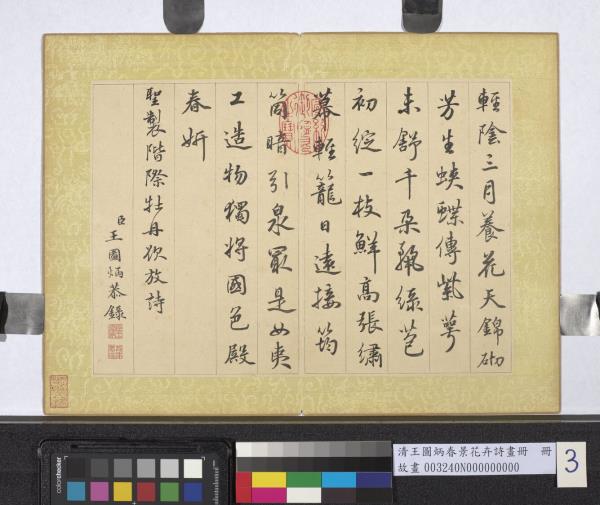 輕陰三月養花天錦砌
芳生蛺蝶傳紫萼
未舒千朵艶綠苞
初綻一枝鮮高張繡
幕輕籠日遠接筠
筒暗引泉最是女夷
工造物獨將國色殿
春妍
聖製階際牡丹欲放詩
臣王圖炳恭錄
清王圖炳春景花卉詩畫冊 冊
故畫 003240N000000000
3
colorchecker